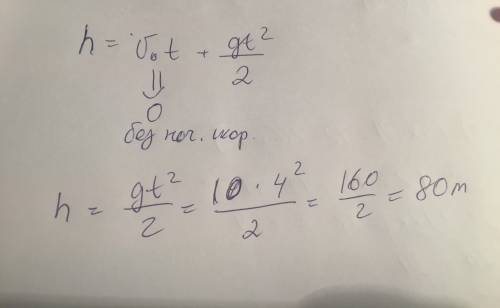 h = v₀t + gt²/2
⇓
0
без нач. скор.
h = gt²/2 = 10 · 4²/2 = 160/2 = 80м